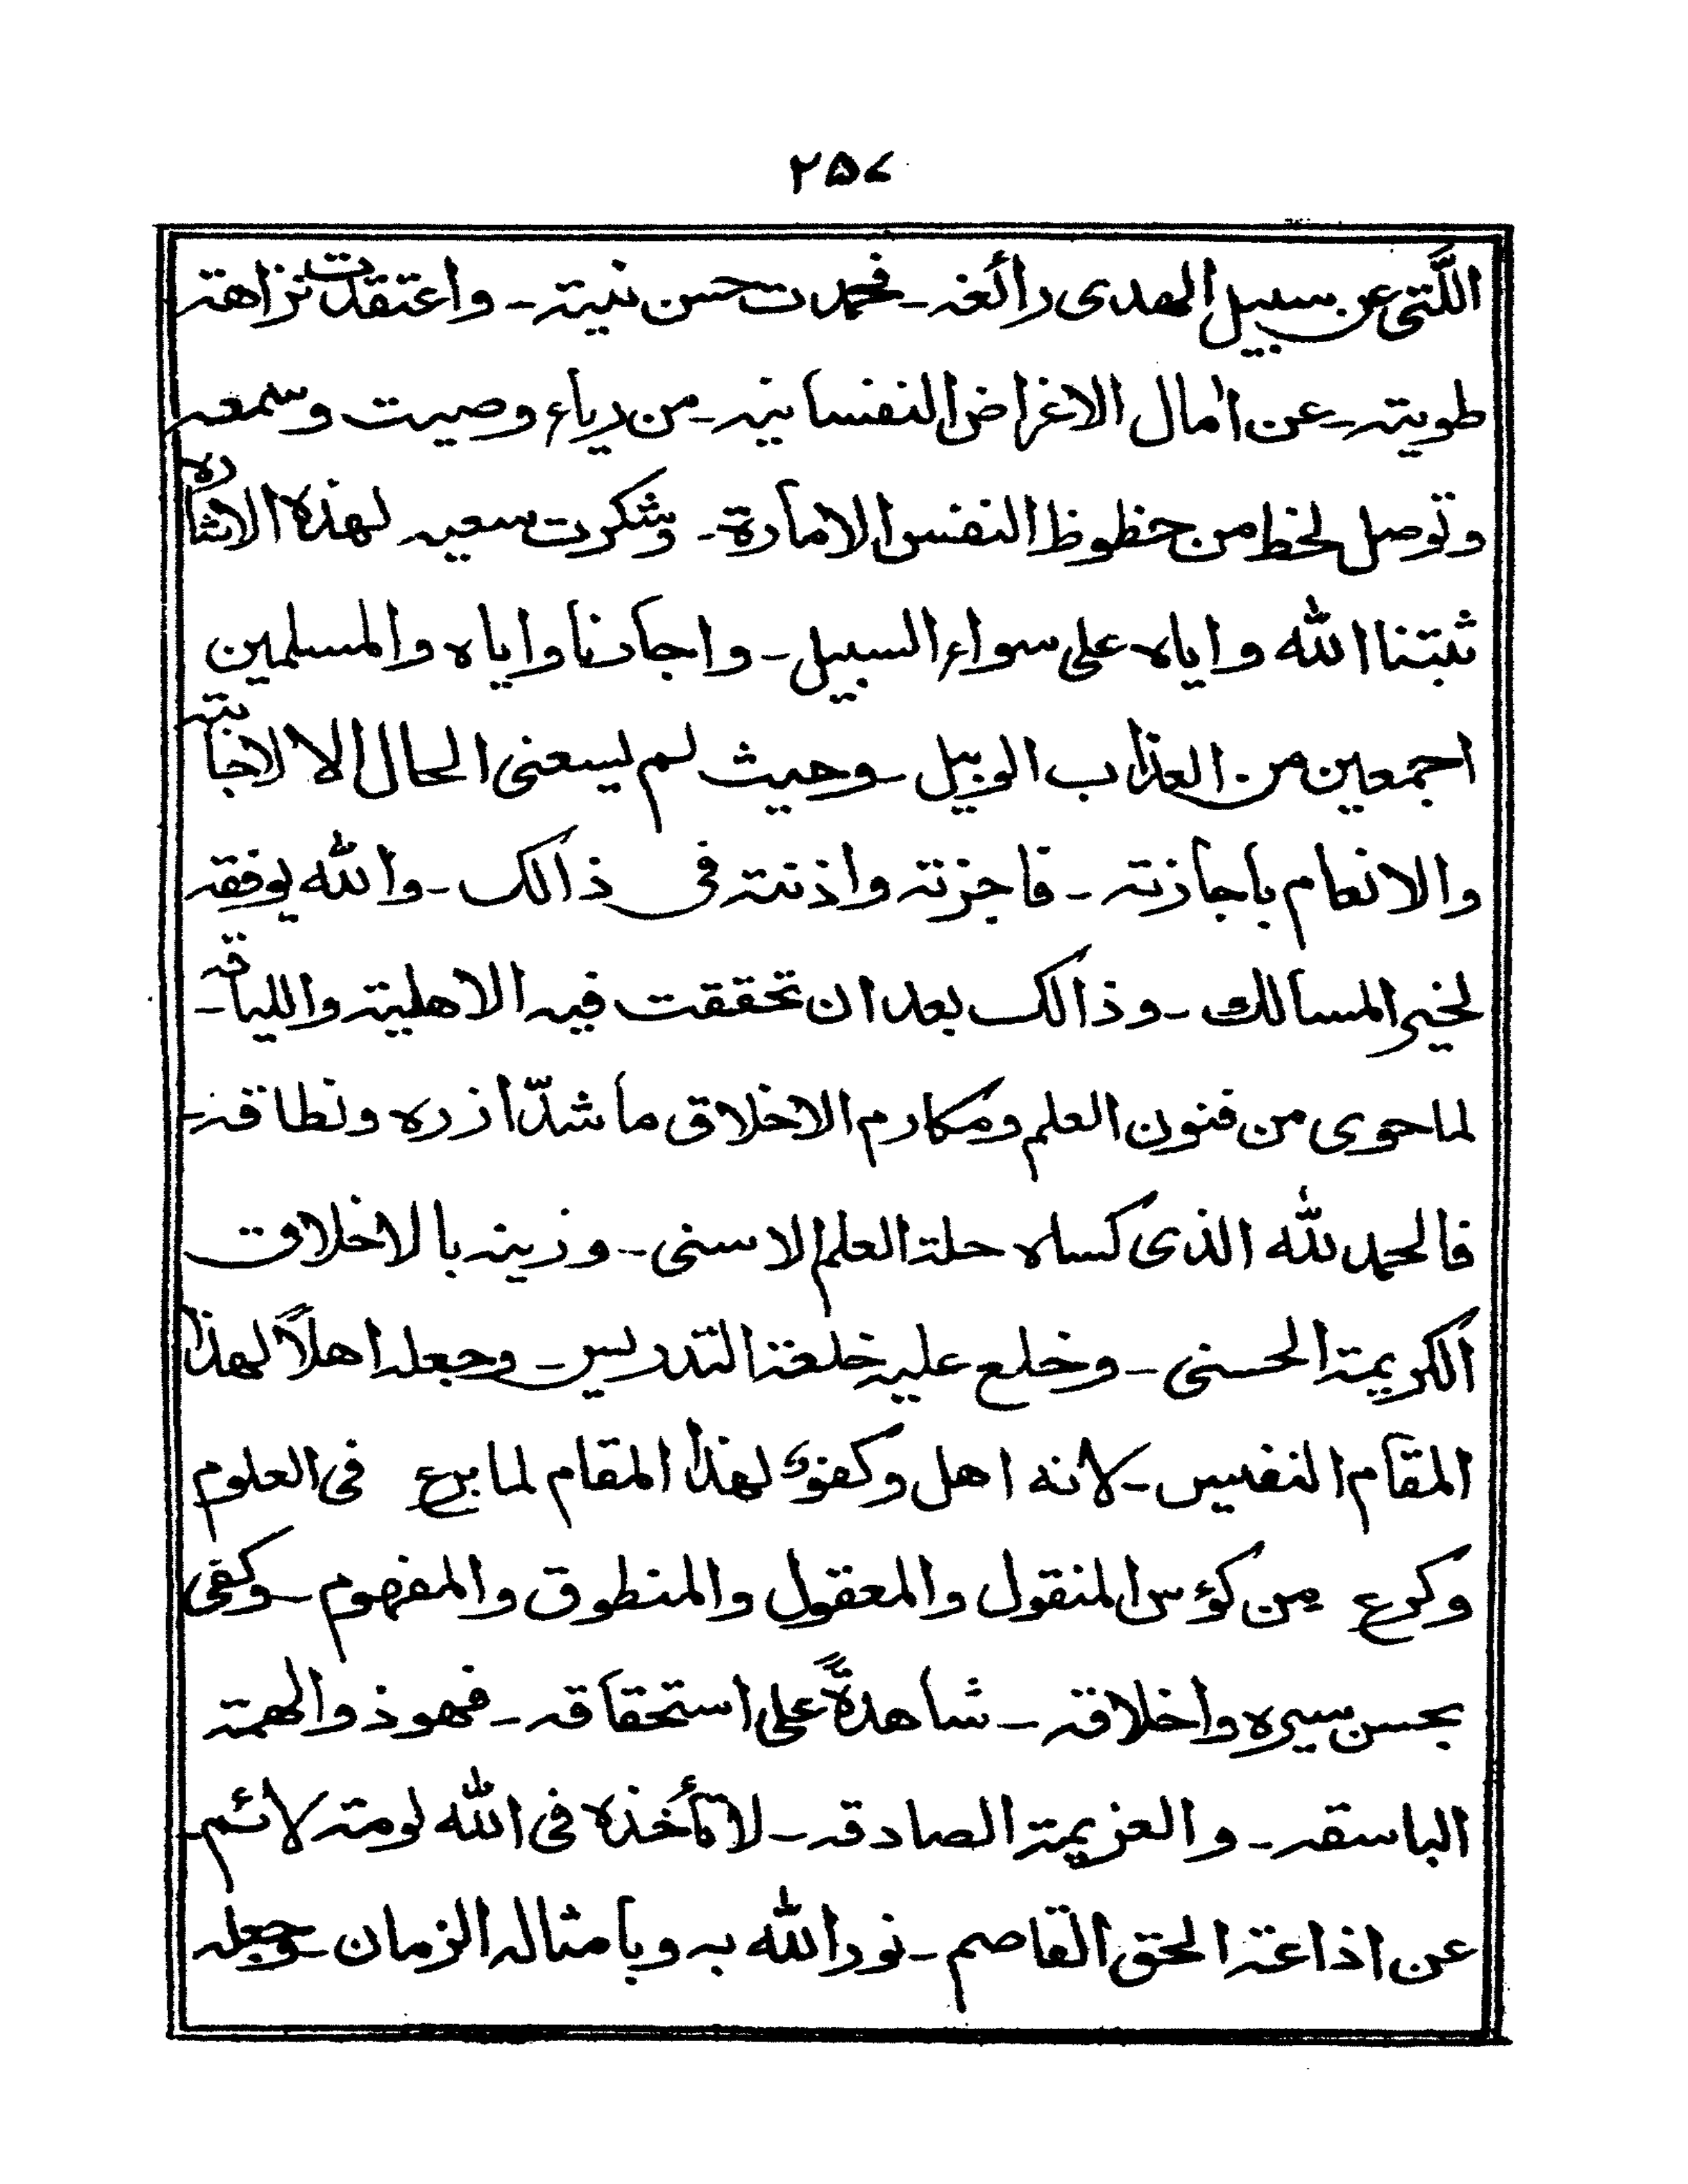 ۲۵۷
اللّتی عن سبیل الهدی رائغه ـ فحمدت حسن نیته ـ واعتقدت نزاهته
طویته ـ عن امال الاغراض النفسانیه ـ من ریاء وصیت وسمعه
وتوصل لحظ من حظوظ النفس الامارة ـ وشکرت سعیه لهذه الاشاره
ثبتنا الله وایاه علی سواء السبیل ـ واجارنا وایاه والمسلمین
اجمعین من العذاب الوبیل ـ وحیث لم لیسعنی الحال الا لاجابته
والانعام باجازته ـ فاجزته واذنته فی ذالک ـ والله یوفقه
لخیر المسالک ـ وذالک بعد ان تحققت فیه الاهلیته واللیاقه ـ
لما حوی من فنون العلم ومکارم الاخلاق ما شدّ ازره ونطاقه ـ
فالحمد لله الذی کساه حلة العلم الاسنی ـ وزینه بالاخلاق
الکریمة الحسنی ـ وخلع علیه خلعة التدریس ـ وجعله اهلاً لهذا
المقام النفیس ـ لانه اهل وکفؤ لهذا المقام لما برع فی العلوم
وکرع من کؤس المنقول والمعقول والمنطوق والمفهوم ـ وکفی
بحسن سیره واخلاقه ـ شاهدةً علی استحقاقه ـ فهو ذوالهمة
الباسقه ـ والعزیمة الصادقه ـ لا تأخذه فی الله لومة لائم ـ
عن اذاعة الحق القاصم ـ نور الله به وبامثاله الزمان ـ وجعله